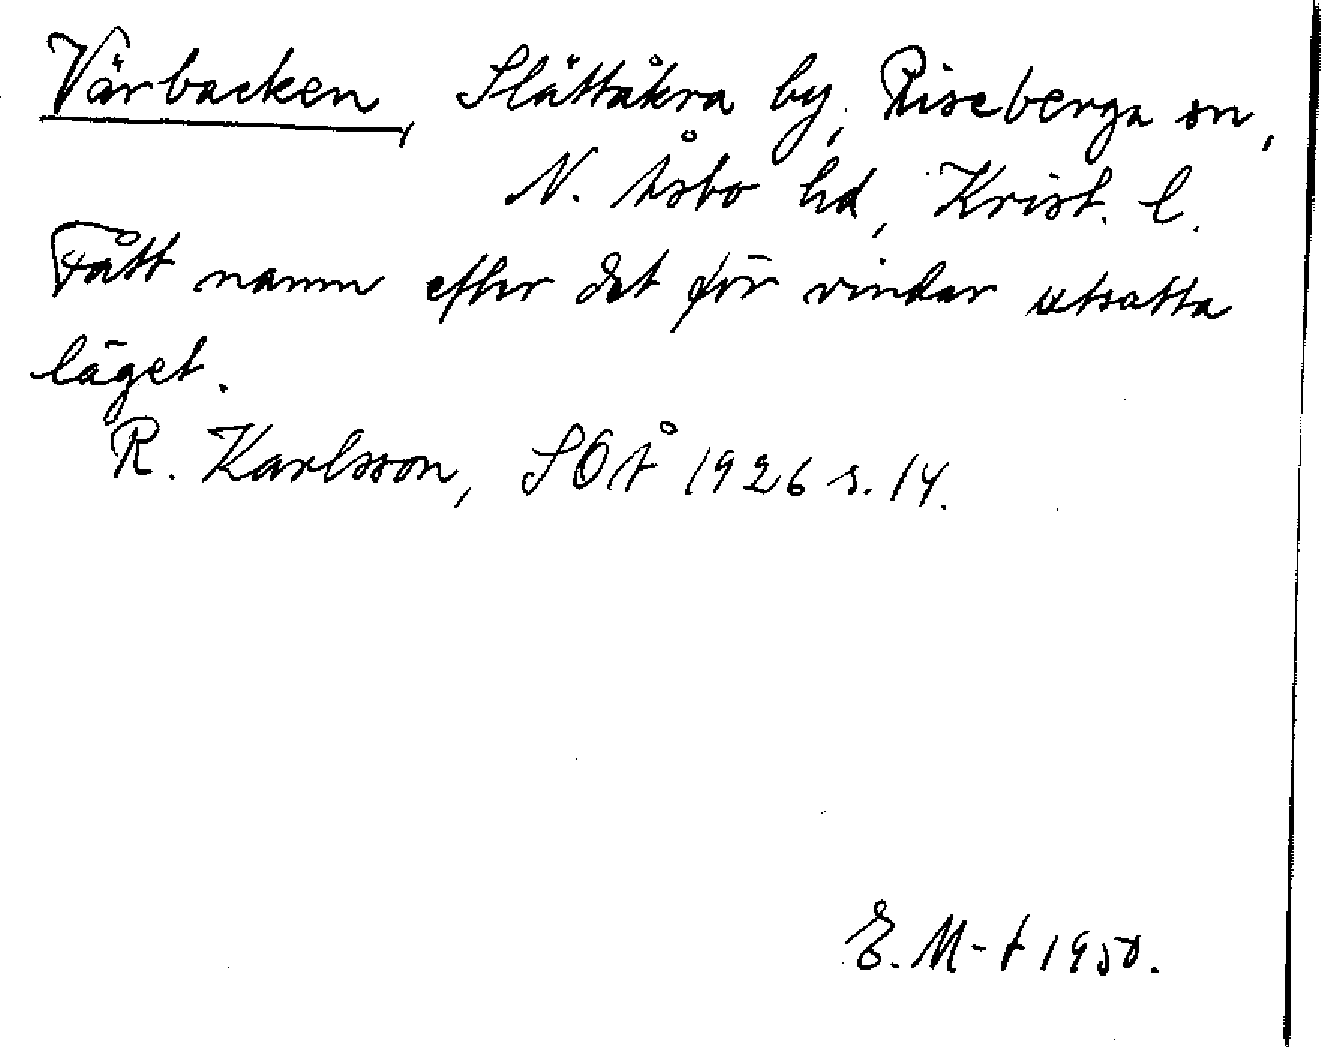 Värbacken, Slättåkra by, Riseberga sn,
N. Åsbo hd, Krist. l.
Fått namn efter det för vindar utsatta
läget.
R. Karlsson, SOÅ 1926 s. 14.
E. M-t 1950.